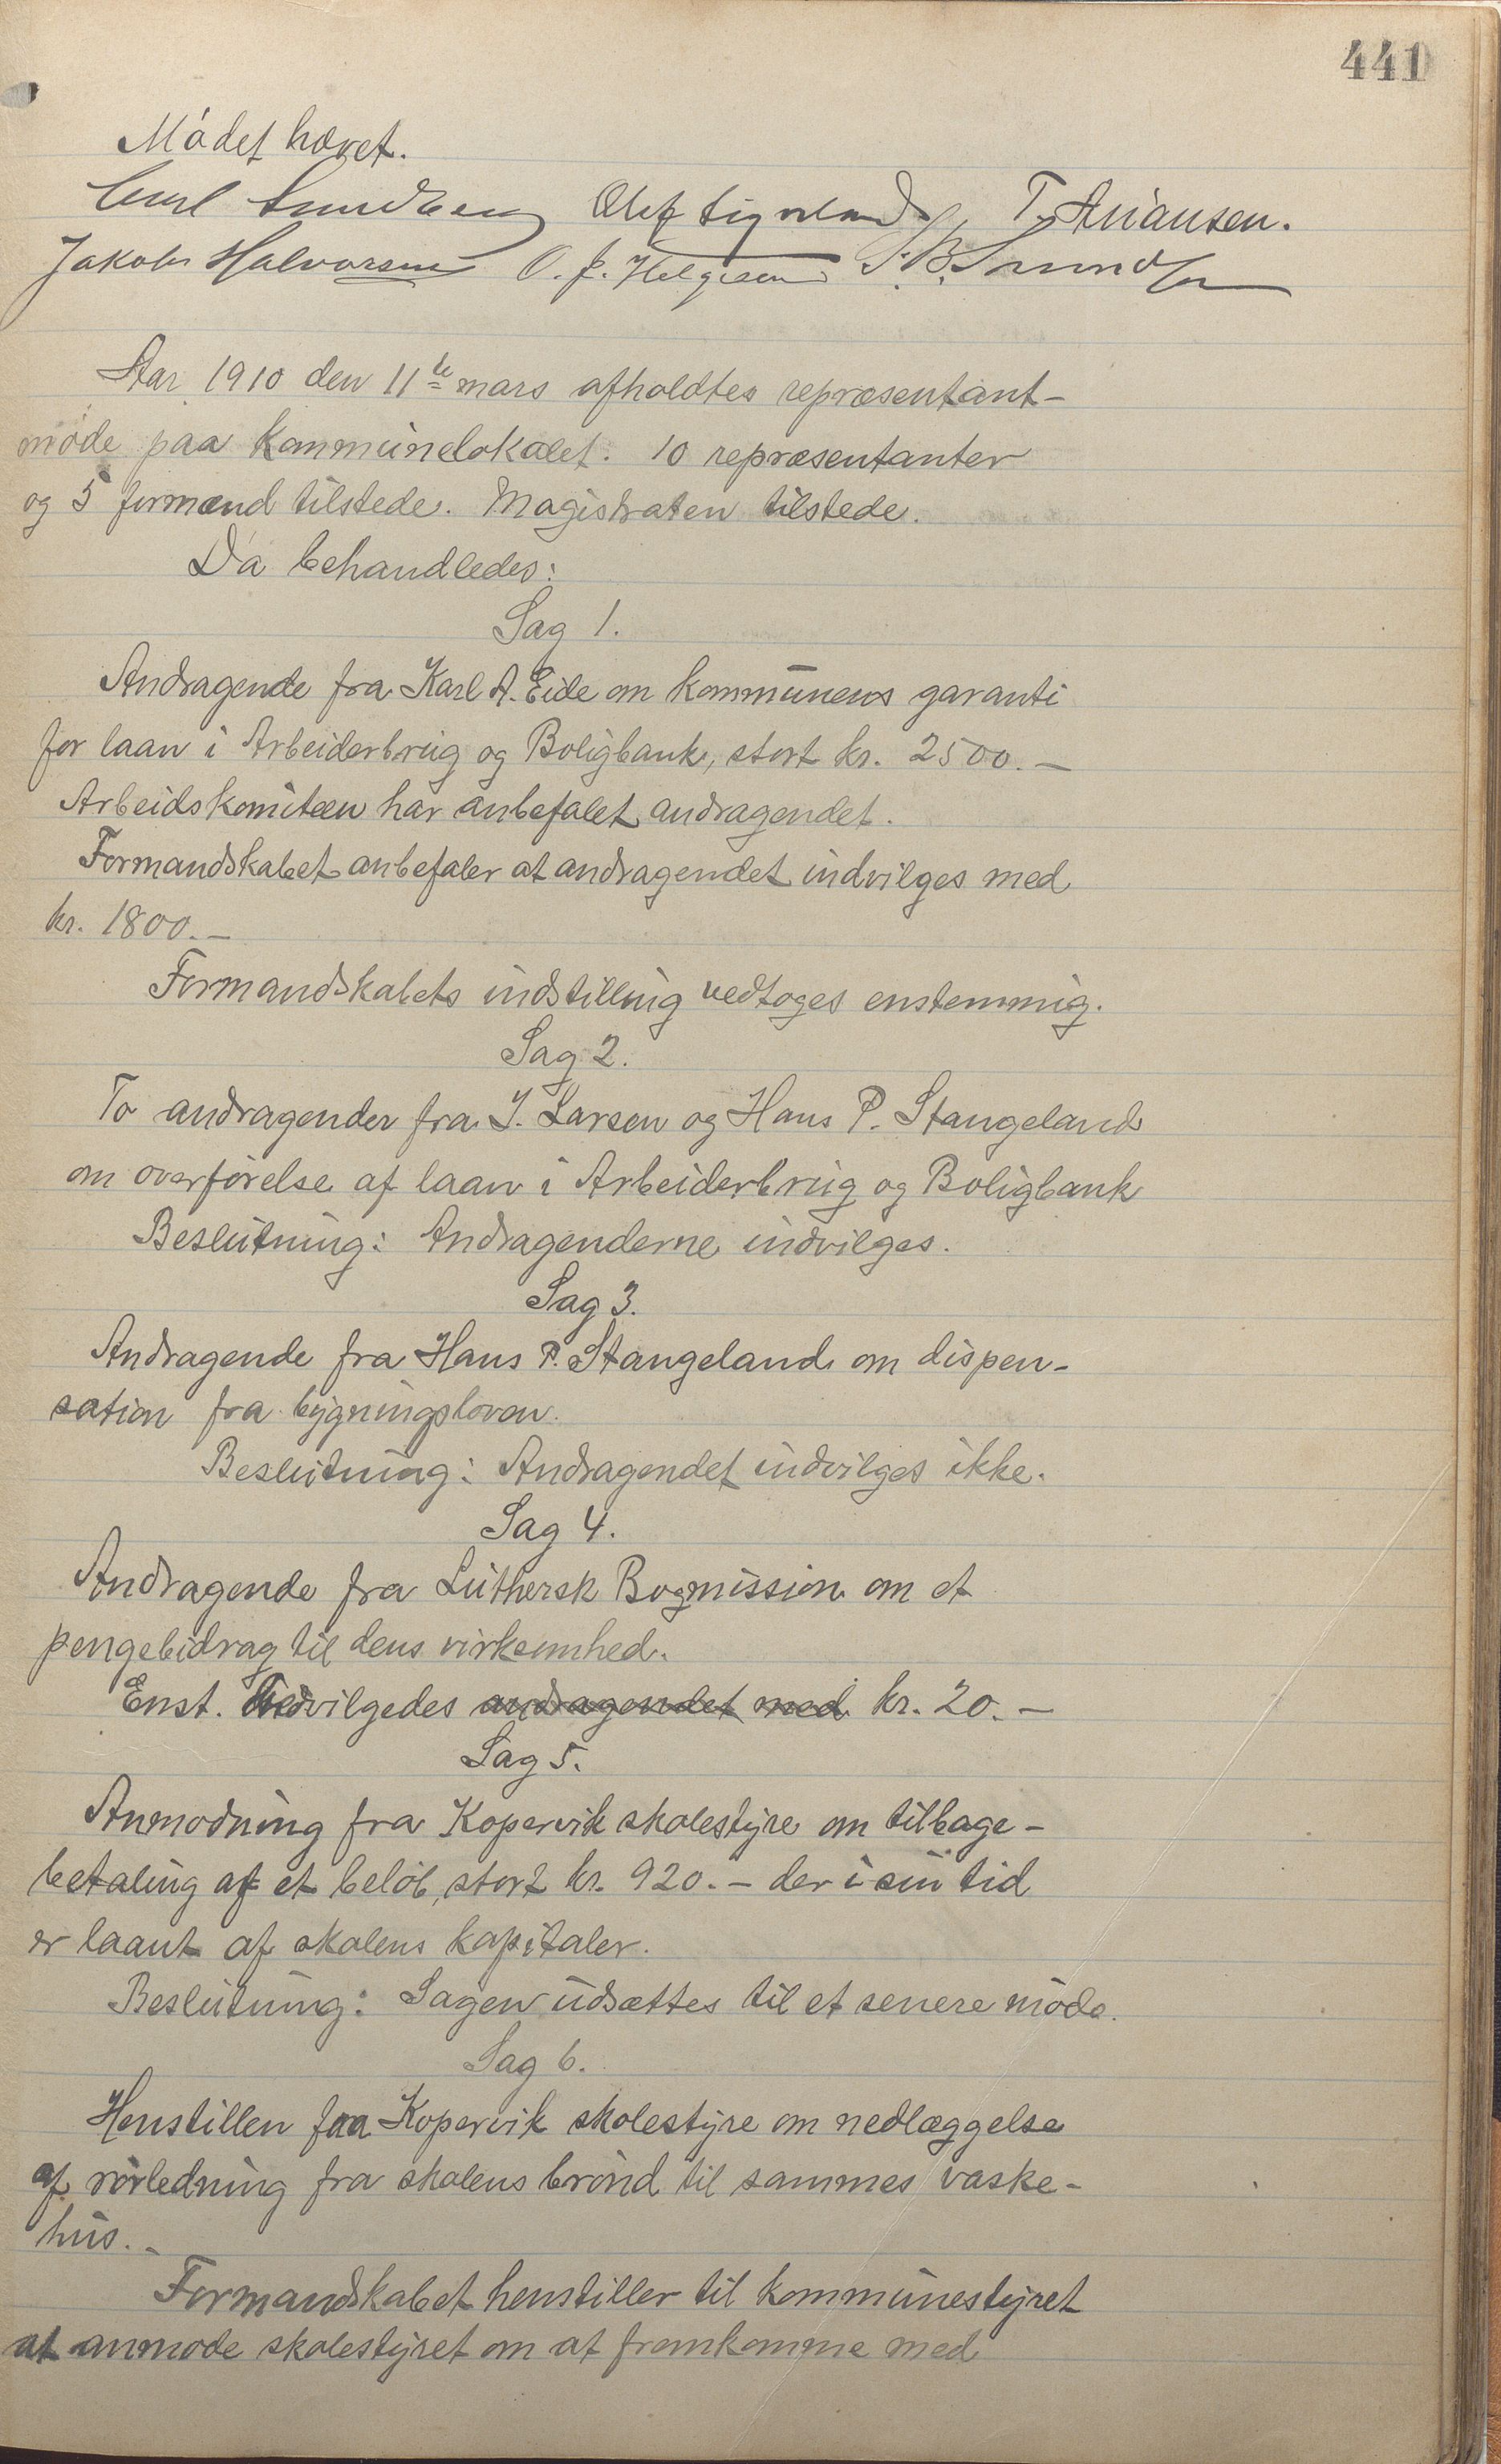 441
Mødet hævet.
Carl Sundberg Olaf Eigeland T. Asiansen.
Jakob Halvorsen O. J. Helgesen S. B. Svendsen
Aar 1910 den 11te mars afholdtes repræsentant-
møde paa kommunelokalet. 10 repræsentanter
og 5 formænd tilstede. Magistraten tilstede.
Da behandledes:
Sag 1.
Andragende fra Karl A. Eide om kommunens garanti
for laan i Arbeiderbrug og Boligbank, stort kr. 2500.—
Arbeidskomiteen har anbefalet andragendet.
Formandskabet anbefaler at andragendet indvilges med
kr. 1800.—
Formandskabets indstilling vedtoges enstemmig.
Sag 2.
To andragender fra J. Larsen og Hans P. Stangeland
om overførelse af laan i Arbeiderbrug og Boligbank
Beslutning: Andragenderne indvilges.
Sag 3.
Andragende fra Hans P. Stangeland om dispen-
sation fra bygningsloven.
Beslutning: Andragendet indvilges ikke.
Sag 4.
Andragende fra Luthersk Bogmission om et
pengebidrag til dens virksomhed.
Enst. Bevilgedes andragendet med kr. 20.—
Sag 5.
Anmodning fra Kopervik skolestyre om tilbage-
betaling af et beløb, stort kr. 920.— der i sin tid
er laant af skolens kapitaler.
Beslutning: Sagen udsættes til et senere møde.
Sag 6.
Henstillen fra Kopervik skolestyre om nedlæggelse
af rørledning fra skolens brønd til sammes vaske-
hus.—
Formandskabet henstiller til kommunestyret
at anmode skolestyret om at fremkomme med